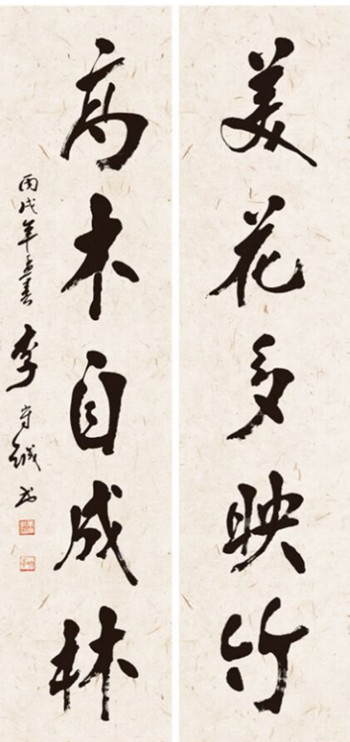 美花多映竹
高木自成林
丙戌年孟春李守诚书